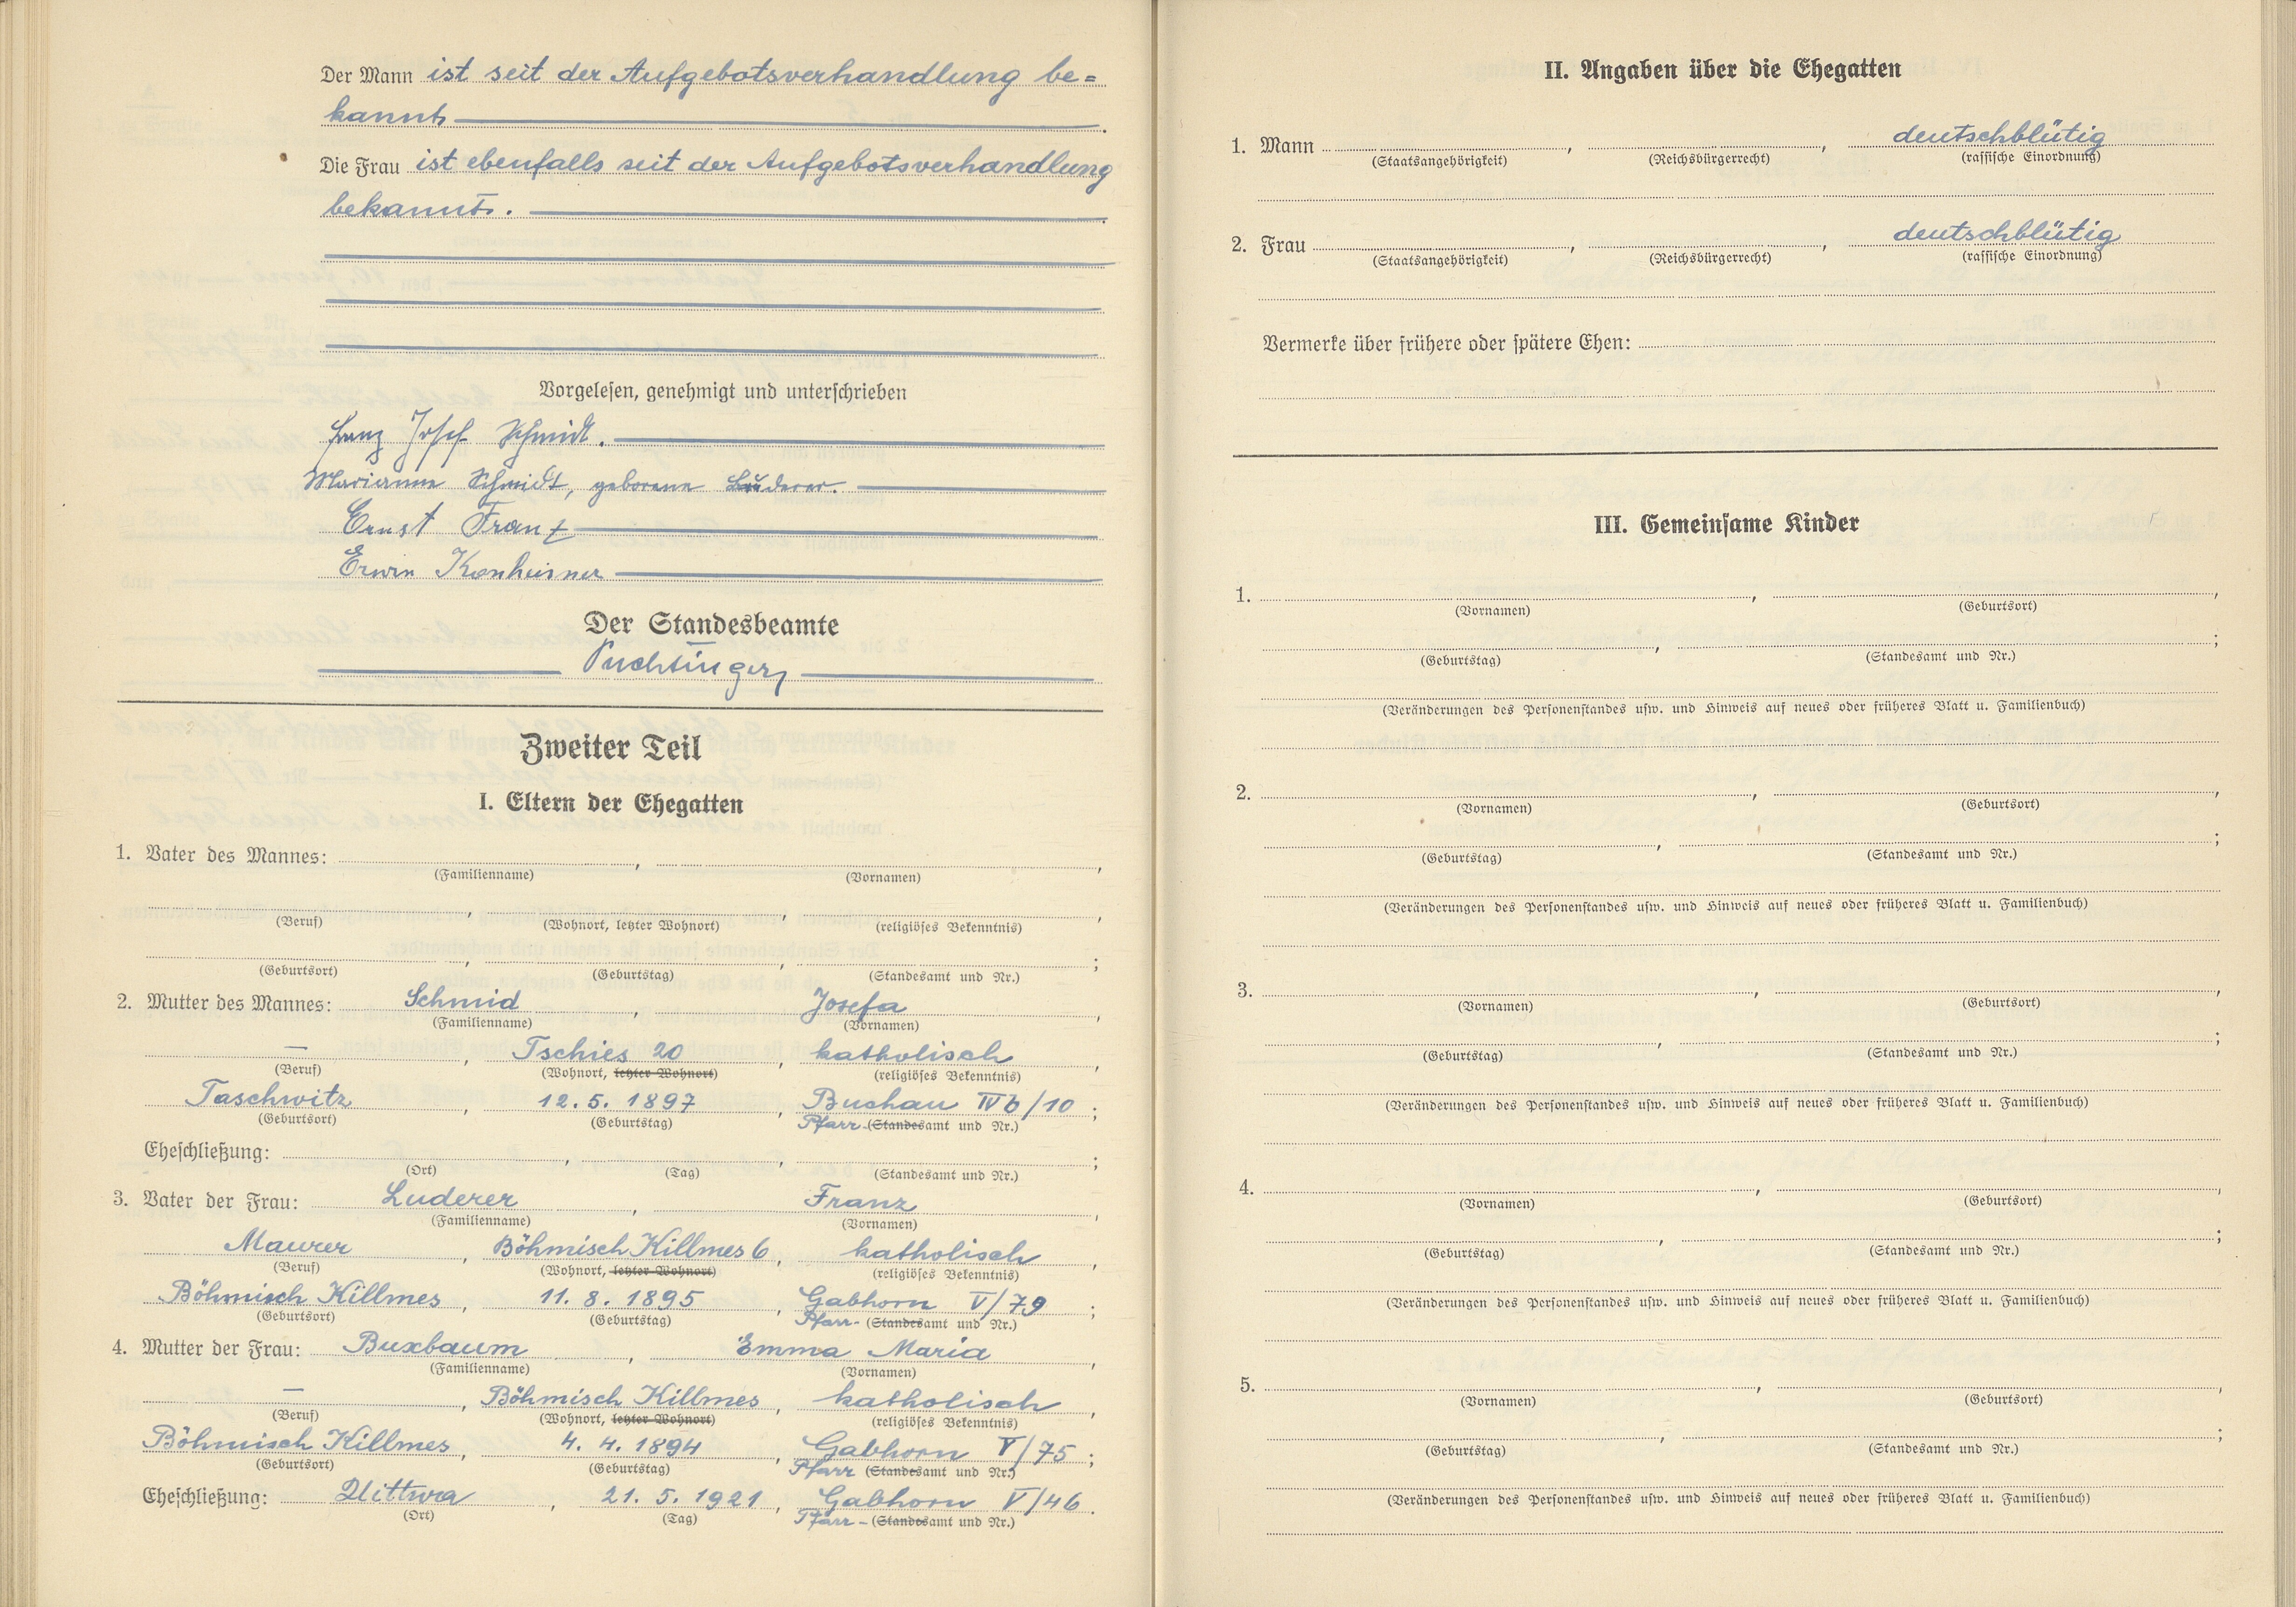 Der Mann ist seit der Aufgebotsverhandlung be=
kannt.
Die Frau ist ebenfalls seit der Aufgebotsverhandlung
bekannt.
Vorgelesen, genehmigt und unterschrieben
Franz Josef Schmidt.
Marianne Schmidt, geborene Luderer.
Ernst Franz
Erwin
Der Standesbeamte
Puchtinger
Zweiter Teil
I. Eltern der Ehegatten
1. Vater des Mannes: , ,
(Familienname) (Vornamen)
, , ,
(Beruf) (Wohnort, letzter Wohnort) (religiöses Bekenntnis)
, , ;
(Geburtsort) (Geburtstag) (Standesamt und Nr.)
2. Mutter des Mannes: Schmid , Josefa ,
(Familienname) (Vornamen)
— , Tschies 20 , katholisch ,
(Beruf) (Wohnort, letzter Wohnort) (religiöses Bekenntnis)
Taschwitz , 12. 5. 1897 , Buchau IVb/10 ;
(Geburtsort) (Geburtstag) Pfarr- (Standesamt und Nr.)
Eheschließung: , , ;
(Ort) (Tag) (Standesamt und Nr.)
3. Vater der Frau: Luderer , Franz ,
(Familienname) (Vornamen)
Maurer , Böhmisch Killmes 6 , katholisch ,
(Beruf) (Wohnort, letzter Wohnort) (religiöses Bekenntnis)
Böhmisch Killmes , 11. 8. 1895 , Gabhorn V/79 ;
(Geburtsort) (Geburtstag) Pfarr- (Standesamt und Nr.)
4. Mutter der Frau: Buxbaum , Emma Maria ,
(Familienname) (Vornamen)
— , Böhmisch Killmes , katholisch ,
(Beruf) (Wohnort, letzter Wohnort) (religiöses Bekenntnis)
Böhmisch Killmes , 4. 4. 1894 , Gabhorn V/75 ;
(Geburtsort) (Geburtstag) Pfarr (Standesamt und Nr.)
Eheschließung: Uittwa , 21. 5. 1921 , Gabhorn V/46 .
(Ort) (Tag) Pfarr- (Standesamt und Nr.)
II. Angaben über die Ehegatten
1. Mann , , deutschblütig
(Staatsangehörigkeit) (Reichsbürgerrecht) (rassische Einordnung)
2. Frau , , deutschblütig
(Staatsangehörigkeit) (Reichsbürgerrecht) (rassische Einordnung)
Vermerke über frühere oder spätere Ehen:
III. Gemeinsame Kinder
1. , ,
(Vornamen) (Geburtsort)
, ;
(Geburtstag) (Standesamt und Nr.)
(Veränderungen des Personenstandes usw. und Hinweis auf neues oder früheres Blatt u. Familienbuch)
2. , ,
(Vornamen) (Geburtsort)
, ;
(Geburtstag) (Standesamt und Nr.)
(Veränderungen des Personenstandes usw. und Hinweis auf neues oder früheres Blatt u. Familienbuch)
3. , ,
(Vornamen) (Geburtsort)
, ;
(Geburtstag) (Standesamt und Nr.)
(Veränderungen des Personenstandes usw. und Hinweis auf neues oder früheres Blatt u. Familienbuch)
4. , ,
(Vornamen) (Geburtsort)
, ;
(Geburtstag) (Standesamt und Nr.)
(Veränderungen des Personenstandes usw. und Hinweis auf neues oder früheres Blatt u. Familienbuch)
5. , ,
(Vornamen) (Geburtsort)
, ;
(Geburtstag) (Standesamt und Nr.)
(Veränderungen des Personenstandes usw. und Hinweis auf neues oder früheres Blatt u. Familienbuch)